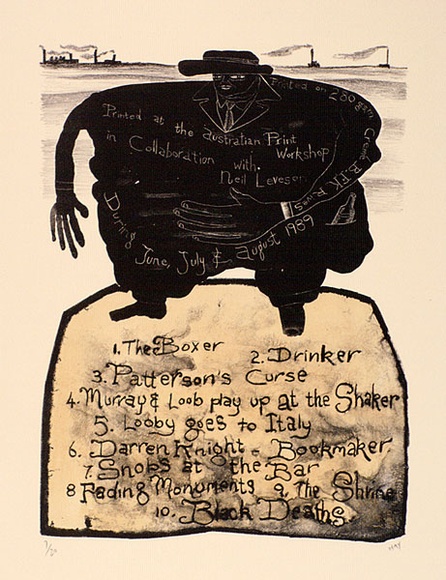 Printed at the Australian Print Workshop
in Collaboration with
Neil Leveson
During June, July, & August 1989
Printed on 280 gsm Creme B.F.K Rives
1. The Boxer
2. Drinker
3. Patterson's Curse
4. Murray & Loob play up at the Shaker
5. Looby goes to Italy
6. Darren Knight - Bookmaker.
7. Snobs at the Bar
8 Fading Monuments 9. The Shrine
10. Black Deaths